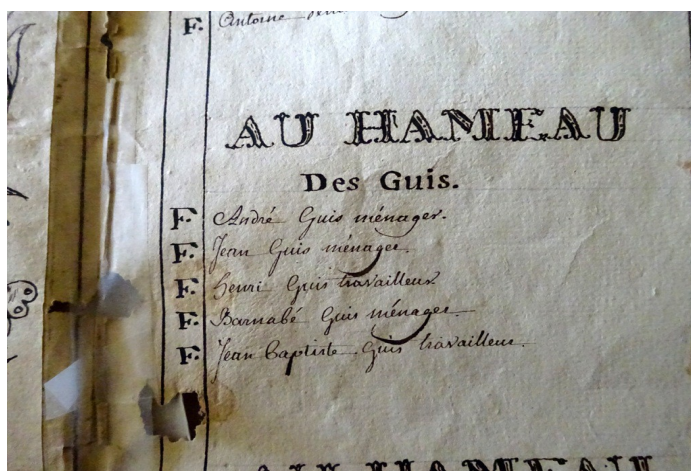 F. Antoine
AU HAMEAU
Des Guis.
F. André Guis ménager.
F. Jean Guis ménager
F. henri Guis travailleur
F. Barnabé Guis ménager
F. Jean baptiste Guis travailleur.
AU HAMEAU